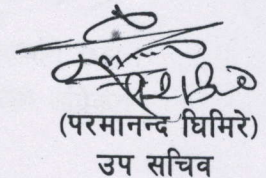 (परमानन्द घिमिरे)
उप सचिव